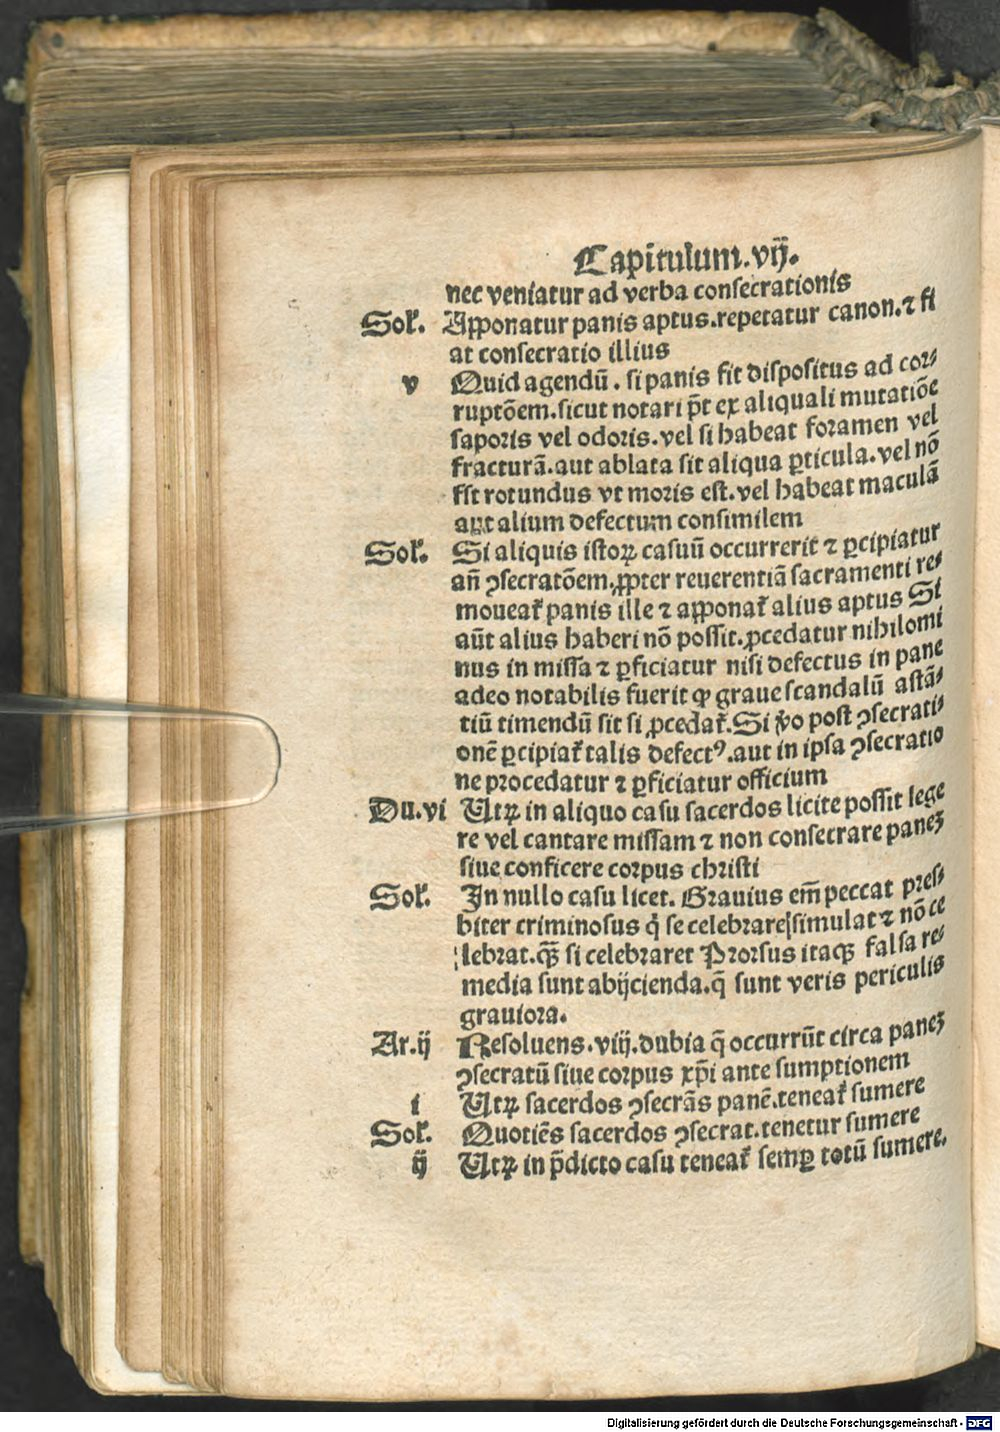 Capitulum.vij.
nec veniatur ad verba consecrationis
Solͬ. Apponatur panis aptus.repetatur canon.⁊ fi
at consecratio illius
v Quid agendū. si panis sit dispositus ad cor⸗
ruptōem.sicut notari pt̄ ex aliquali mutatiōe
saporis vel odoris.vel si habeat foramen vel
fracturā.aut ablata sit aliqua ꝑticula.vel nō
sit rotundus vt moris est.vel habeat maculā
aut alium defectum consimilem
Solͬ. Si aliquis istoꝝ casuū occurrerit ⁊ ꝑcipiatur
añ ꝯsecratōem.ꝓpter reuerentiā sacramenti re⸗
moueat᷑ panis ille ⁊ apponat᷑ alius aptus Si
aūt alius haberi nō possit.ꝓcedatur nihilomi
nus in missa ⁊ ꝑficiatur nisi defectus in pane
adeo notabilis fuerit ꝙ graue scandalū astā⸗
tiū timendū sit si ꝓcedat᷑.Si v̄o post ꝯsecrati⸗
onē ꝑcipiat᷑ talis defectꝰ.aut in ipsa ꝯsecratio
ne procedatur ⁊ ꝑficiatur officium
Du.vi Utꝝ in aliquo casu sacerdos licite possit lege
re vel cantare missam ⁊ non consecrare paneꝫ
siue conficere corpus christi
Solͬ. In nullo casu licet. Grauius em̄ peccat pres⸗
biter criminosus q̇ se celebrare simulat ⁊ nō ce
lebrat.q̄ꝫ si celebraret Prorsus itaqꝫ falsa re⸗
media sunt abijcienda.q̄ sunt veris periculis
grauiora.
Ar.ij Resoluens.viij.dubia q̄ occurrūt circa paneꝫ
ꝯsecratū siue corpus xp̄i ante sumptionem
i Utꝝ sacerdos ꝯsecrās panē.teneat᷑ sumere
Solͬ. Quotiēs sacerdos ꝯsecrat.tenetur sumere
ij Utꝝ in p̄dicto casu teneat᷑ semꝑ totū sumere.
Digitalisierung gefördert durch die Deutsche Forschungsgemeinschaft - DFG